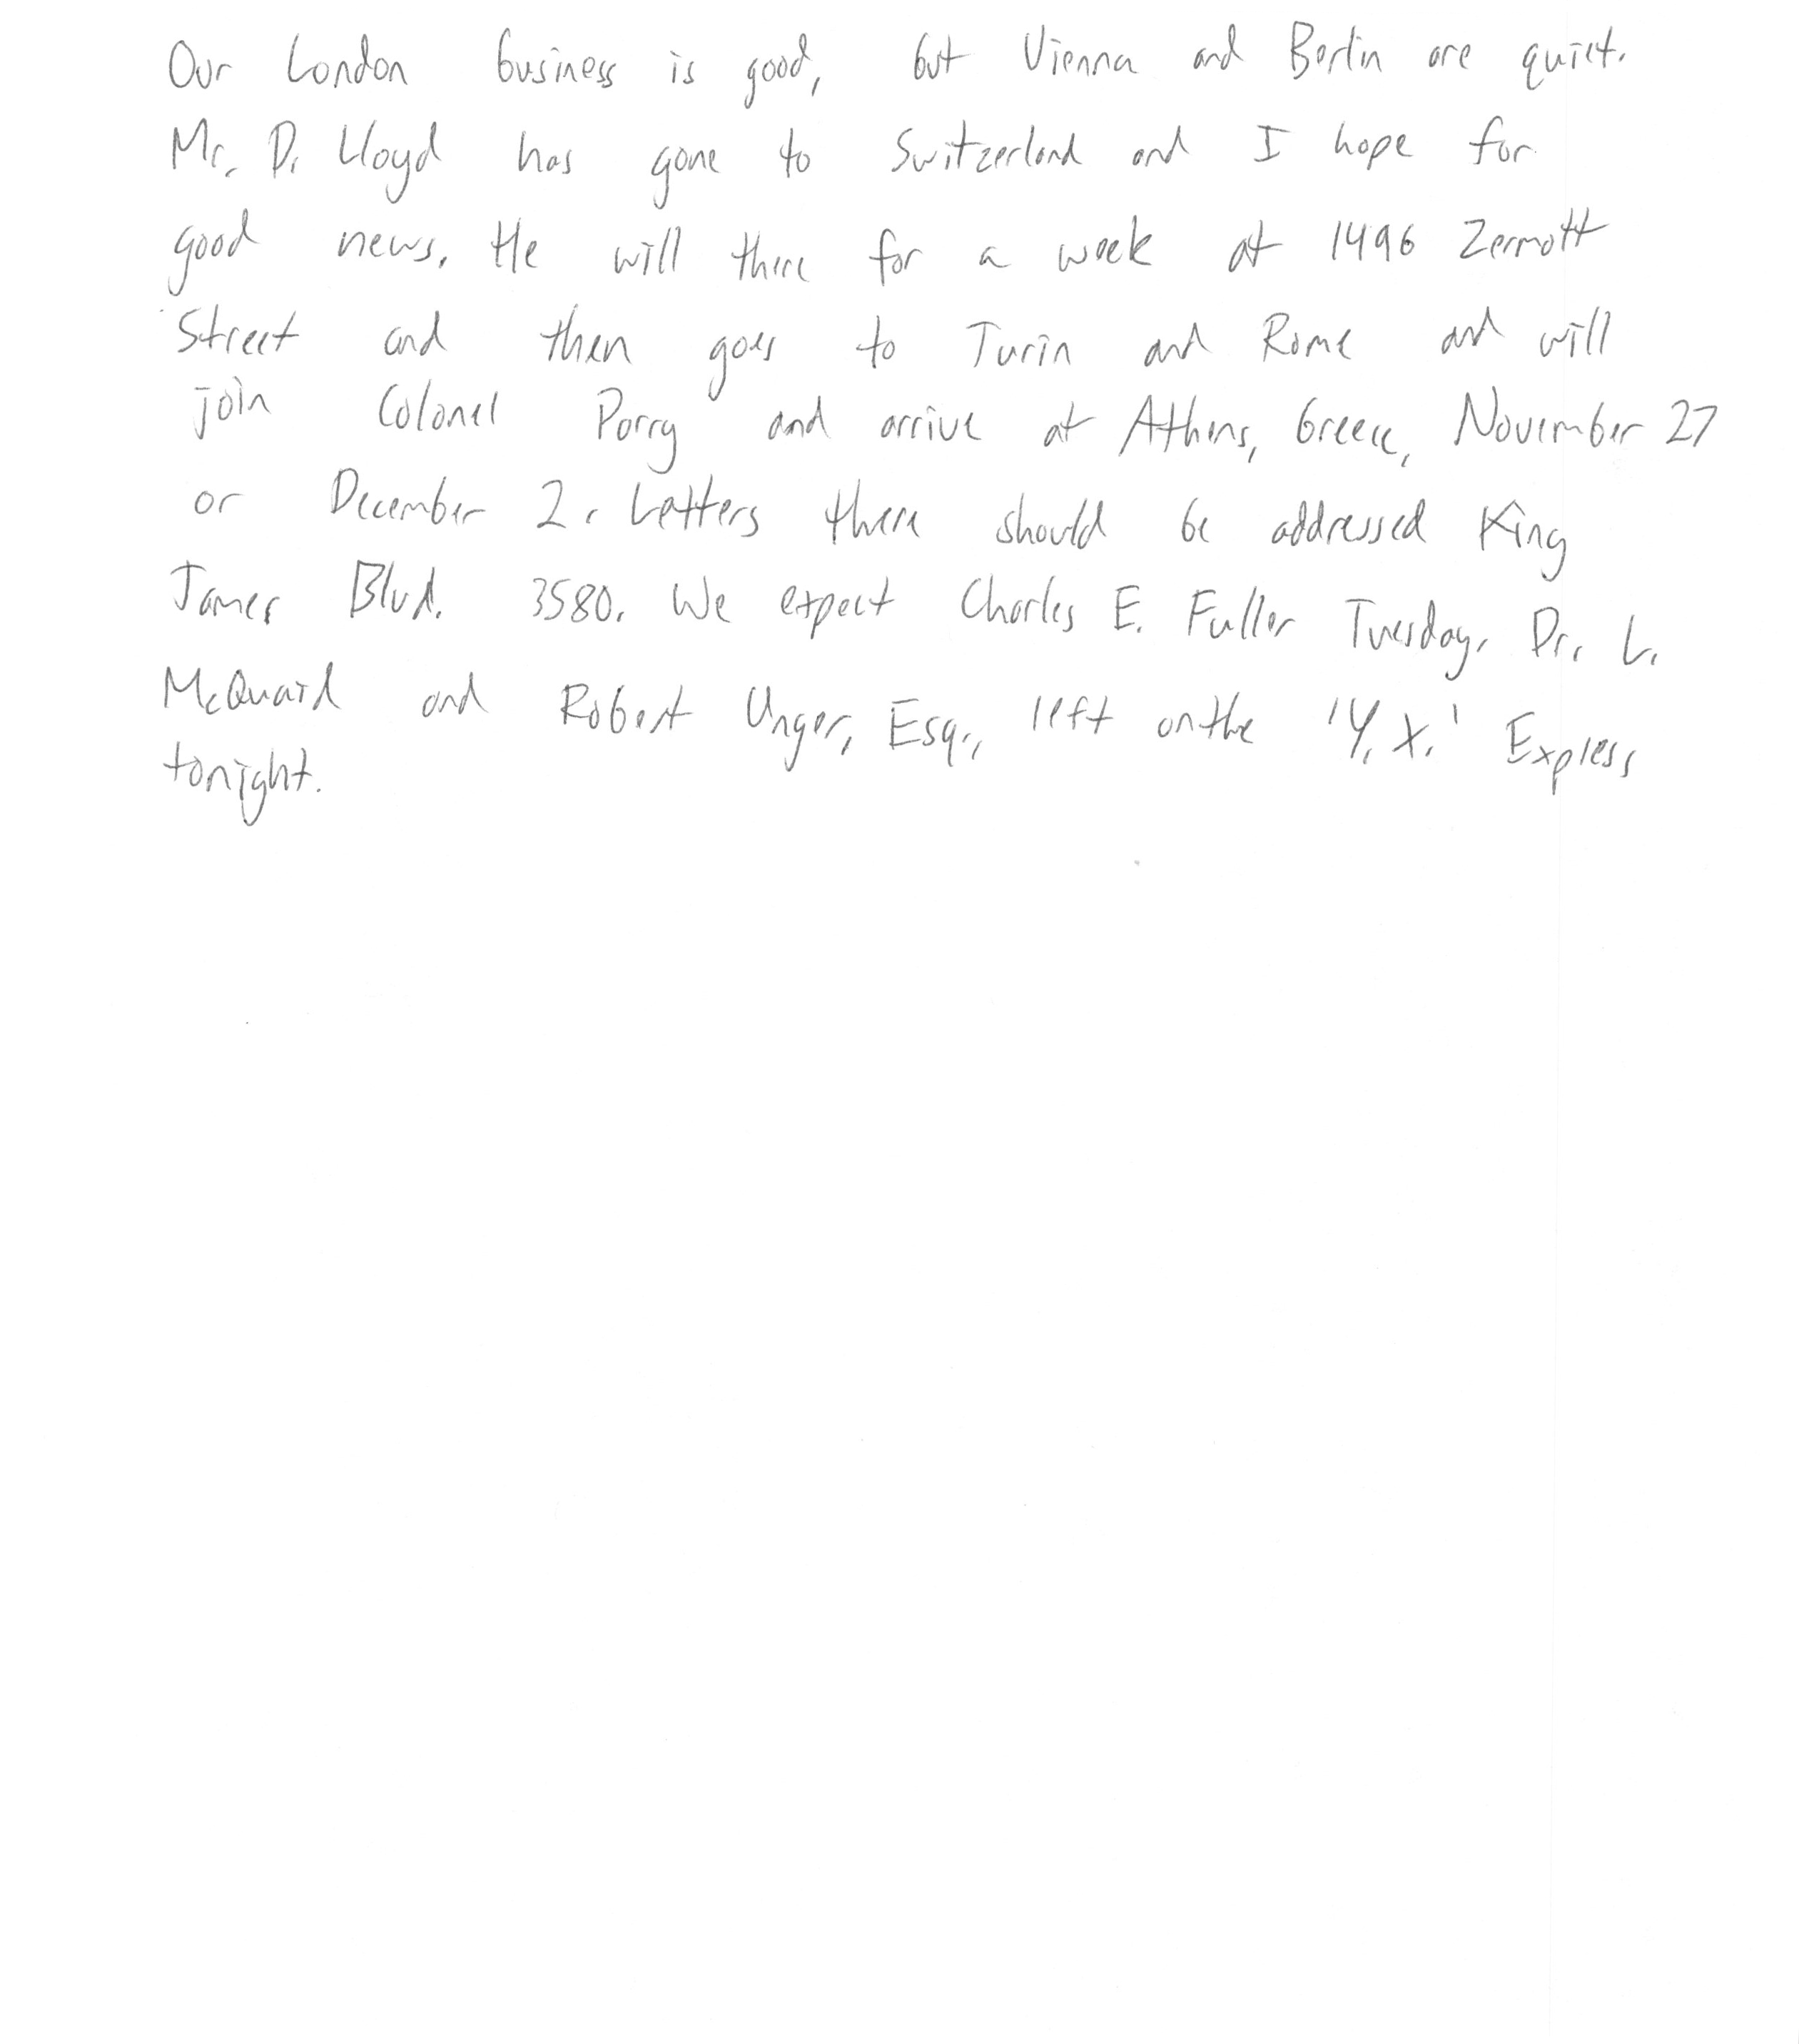 Our London business is good, but Vienna and Berlin are quiet.
Mr. D. Lloyd has gone to Switzerland and I hope for
good news. He will there for a week at 1496 Zermott
Street and then goes to Turin and Rome and will
join Colonel Parry and arrive at Athens, Greece, November 27
or December 2. Letters there should be addressed King
James Blvd. 3580. We expect Charles E. Fuller Tuesday. Dr. L.
McQuaid and Robert Unger, Esq., left on the 'Y.X.' Express
tonight.